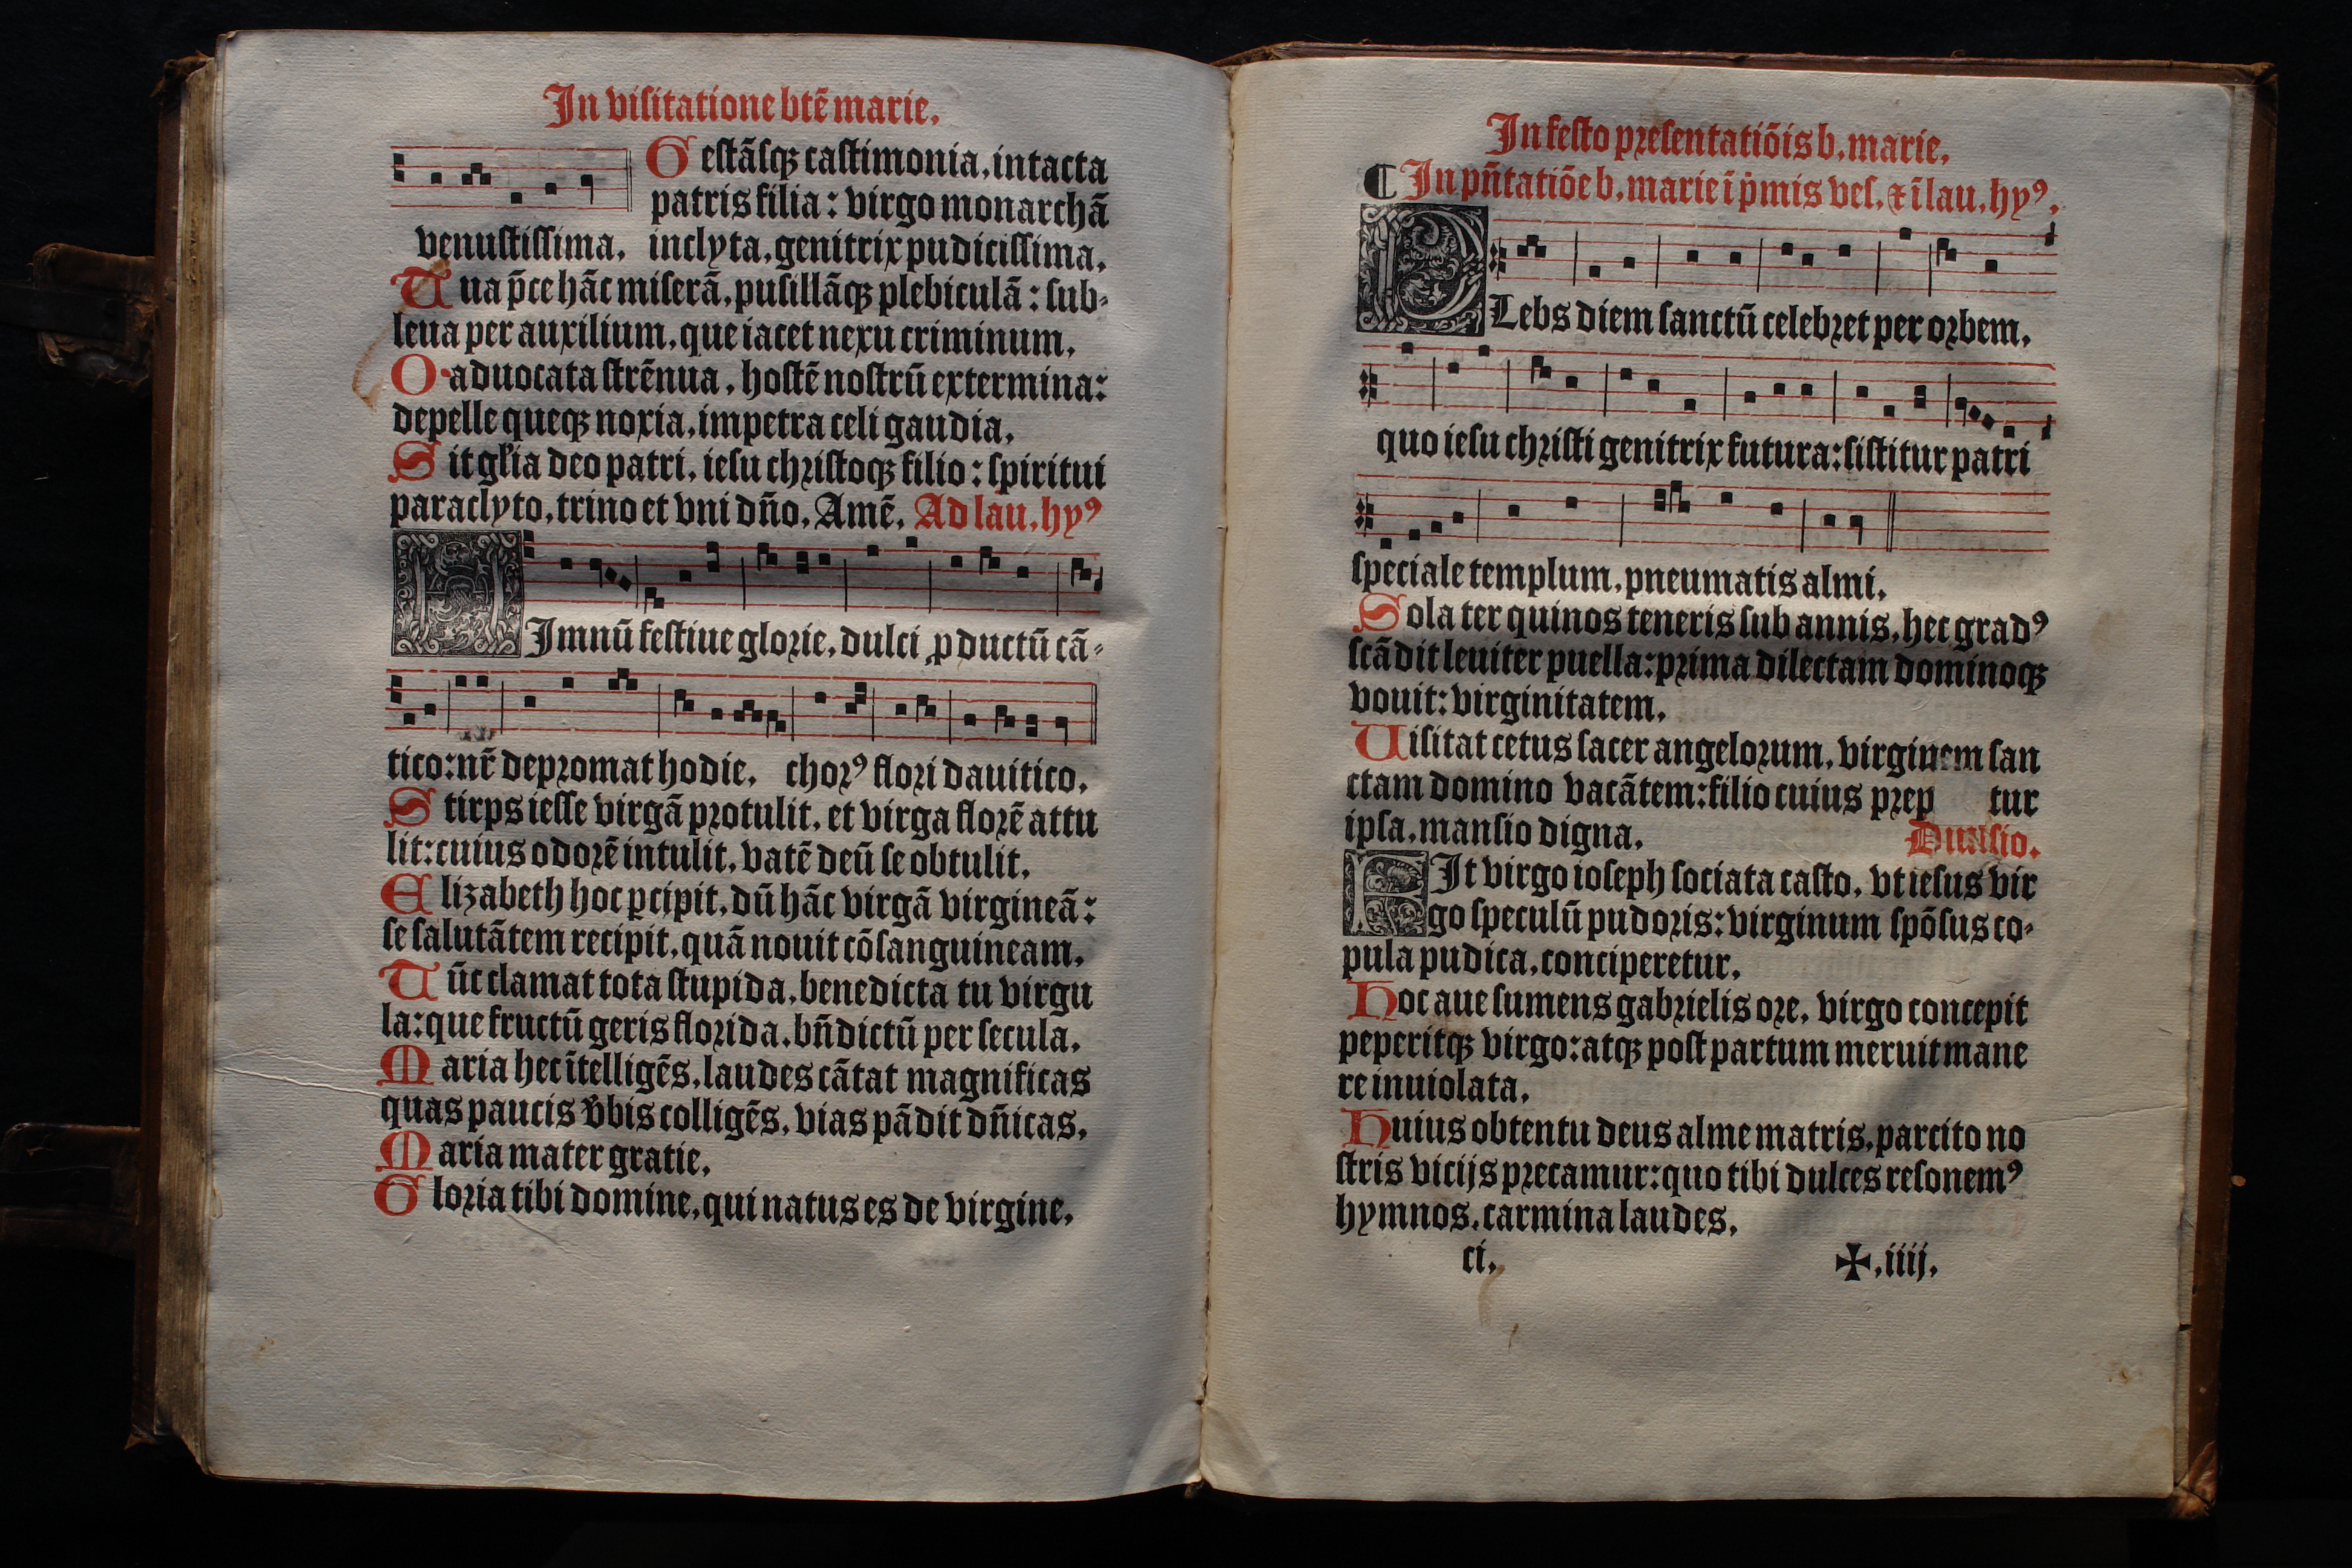 In visitatione btē marie.
Gestāsqꝫ castimonia, intacta
patris filia: virgo monarchā
venustissima, inclyta, genitrix pudicissima.
Tua p̄ce hāc miserā, pusillāqꝫ plebiculā: sub-
leua per auxilium, que iacet nexu criminum.
O aduocata strēnua, hostē nostrū extermina:
depelle queqꝫ noxia, impetra celi gaudia.
Sit gl̄ia deo patri, iesu christoqꝫ filio: spiritui
paraclyto, trino et vni dn̄o. Amē. Ad lau. hyꝰ
HImnū festiue glorie, dulci ꝓductū cā-
tico: nr̄ depromat hodie, chorꝰ flori dauitico.
Stirps iesse virgā protulit, et virga florē attu
lit: cuius odorē intulit, vatē deū se obtulit.
Elizabeth hoc ꝑcipit, dū hāc virgā virgineā:
se salutātem recipit, quā nouit cōsanguineam.
Tūc clamat tota stupida, benedicta tu virgu
la: que fructū geris florida, bn̄dictū per secula.
Maria hec ītelligēs, laudes cātat magnificas
quas paucis v̄bis colligēs, vias pādit dn̄icas.
Maria mater gratie.
Gloria tibi domine, qui natus es de virgine.
In festo presentatiōis b. marie.
¶ In pn̄tatiōe b. marie ī pͥmis ves. ⁊ ī lau. hyꝰ.
PLebs diem sanctū celebret per orbem,
quo iesu christi genitrix futura: sistitur patri
speciale templum, pneumatis almi.
Sola ter quinos teneris sub annis, hec gradꝰ
scādit leuiter puella: prima dilectam dominoqꝫ
vouit: virginitatem.
Uisitat cetus sacer angelorum, virginem san
ctam domino vacātem: filio cuius prep tur
ipsa, mansio digna. Diuisio.
FIt virgo ioseph sociata casto, vt iesus vir
go speculū pudoris: virginum spōsus co-
pula pudica, conciperetur.
Hoc aue sumens gabrielis ore, virgo concepit
peperitqꝫ virgo: atqꝫ post partum meruit mane
re inuiolata.
Huius obtentu deus alme matris, parcito no
stris vicijs precamur: quo tibi dulces resonemꝰ
hymnos, carmina laudes.
ci. ✠.iiij.